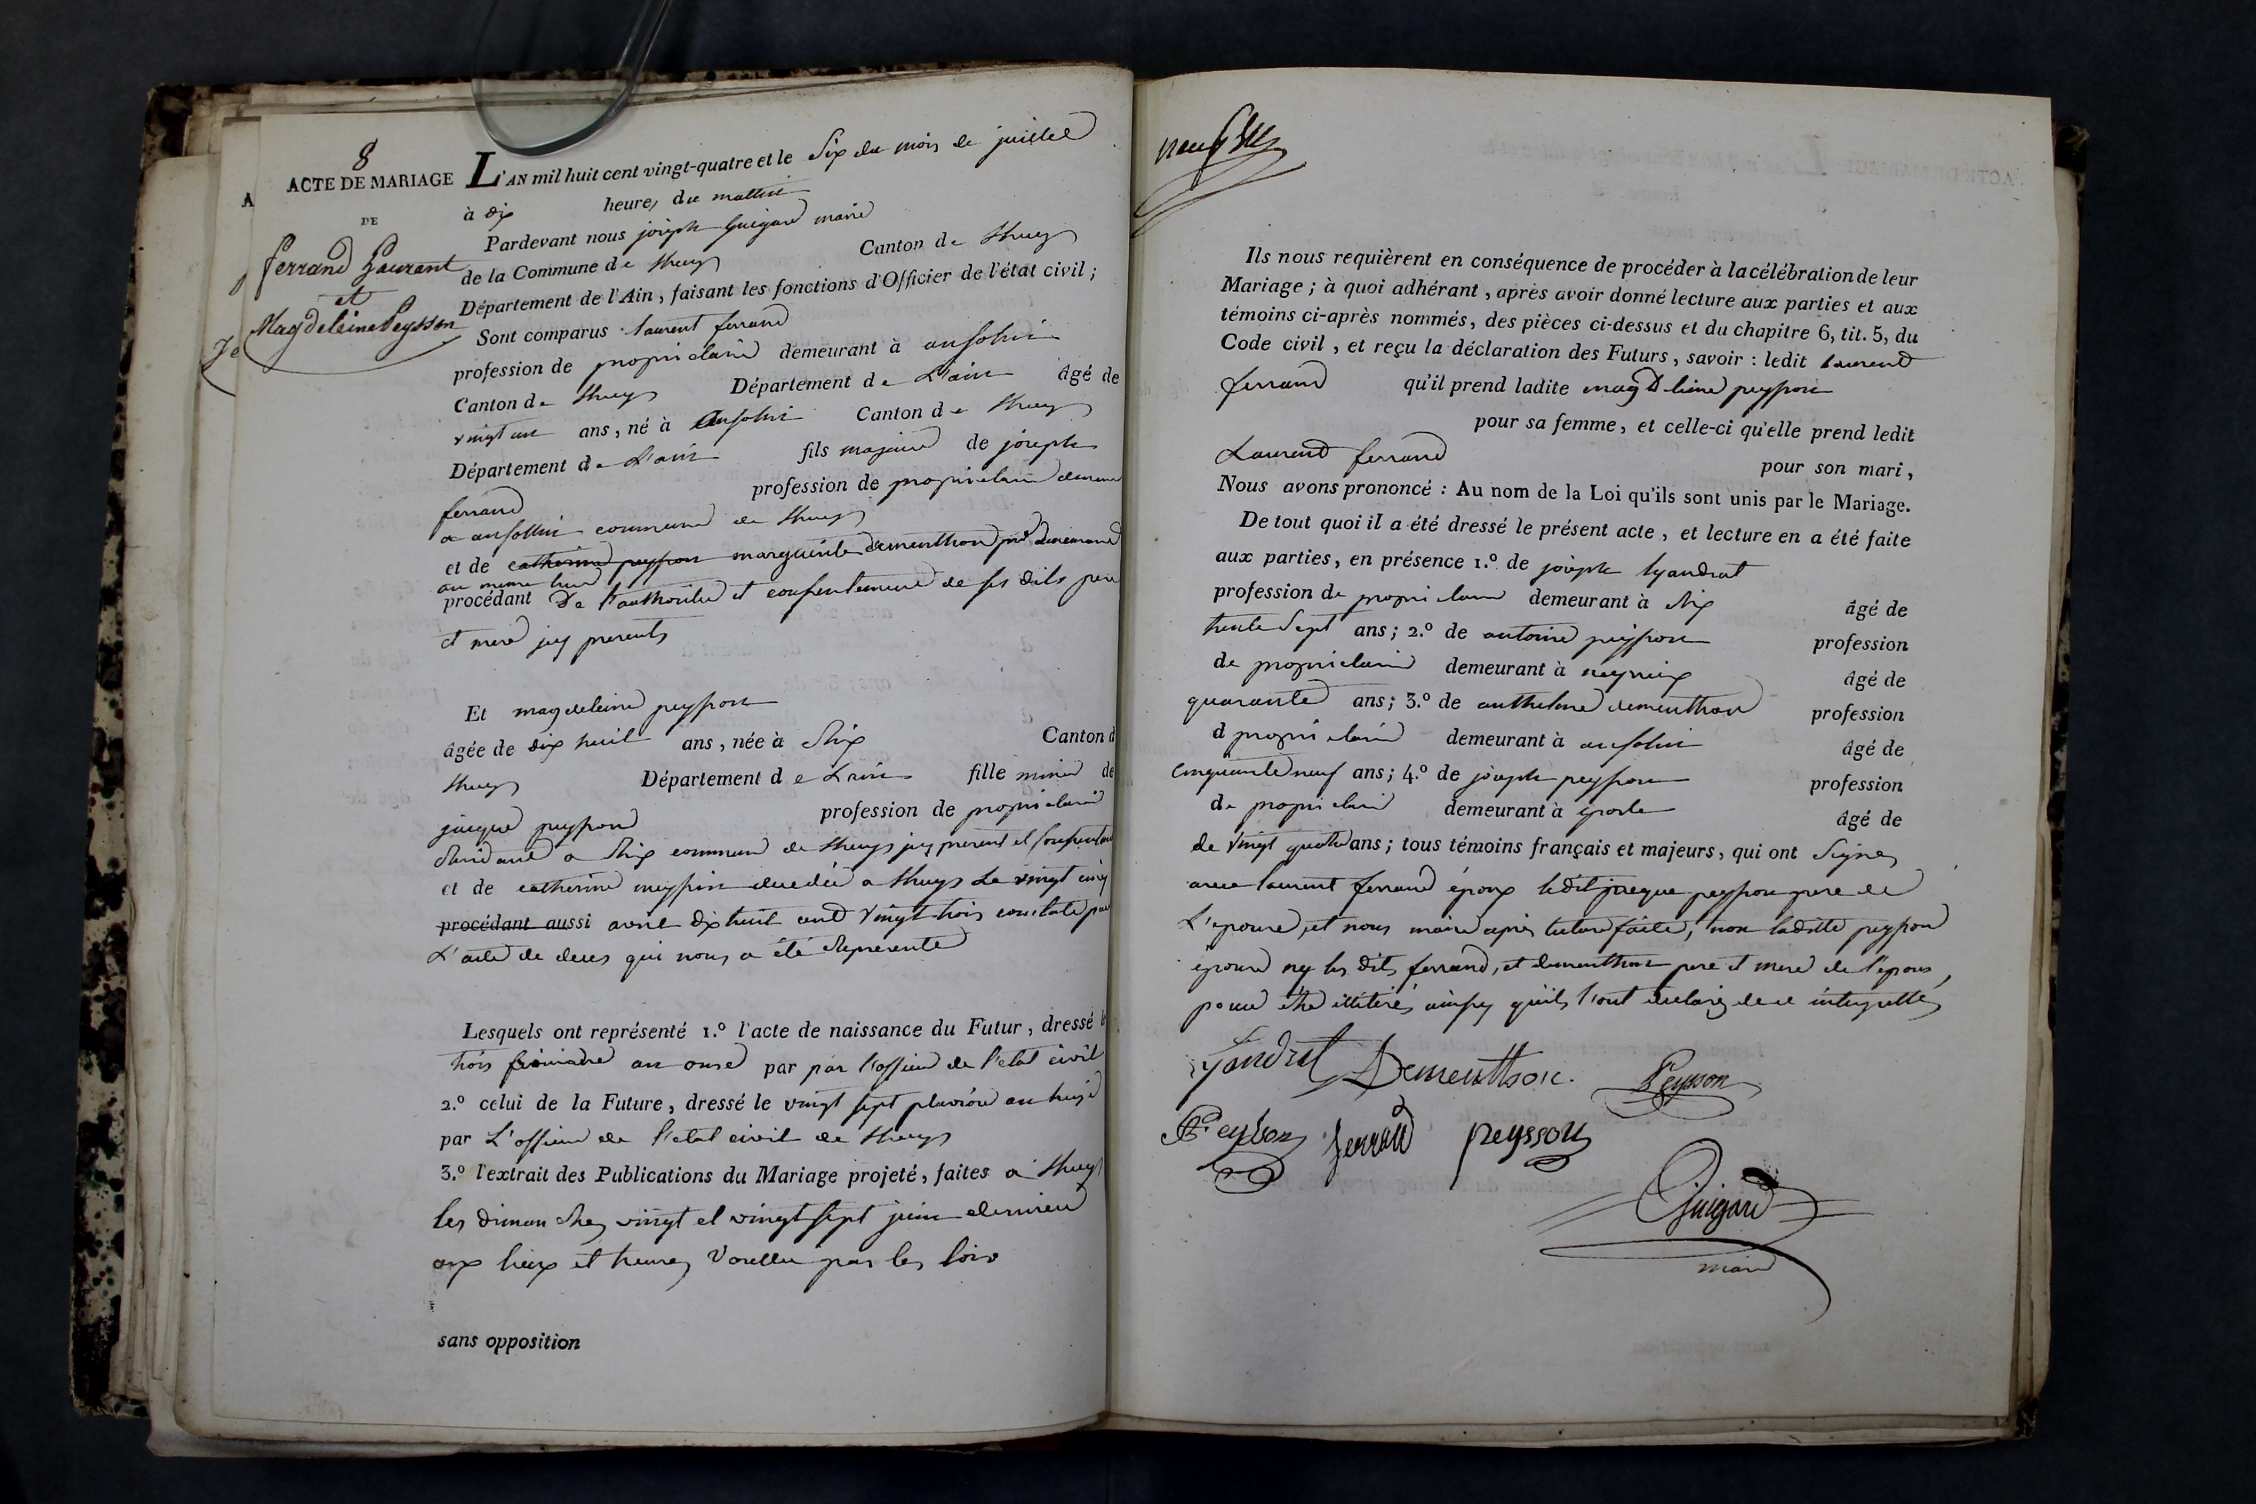 8
ACTE DE MARIAGE
DE
ferrand Laurant
et
Magdeleine Peysson
L'AN mil huit cent vingt-quatre et le Six du mois de juillet
à dix heures du mattin
Pardevant nous joseph Guigard maire
de la Commune de Lhuys Canton de Lhuys
Département de l'Ain, faisant les fonctions d'Officier de l'état civil;
Sont comparus laurent ferrand
profession de propriétaire demeurant à ansolin
Canton de Lhuys Département de L'ain âgé de
vingt un ans, né à ansolin Canton de Lhuys
Département de L'ain fils majeur de joseph
ferrand profession de propriétaire demeurant
a ansollin commune de Lhuys
et de catherine peysson marguerite dementhon demeurant
au meme lieu
procédant De l'authorité et consentement de ses dits père
et mere jcy presents
Et magdeleine peysson
âgée de dix huit ans, née à Rix Canton d
Lhuys Département de Lain fille mineure de
jacque peysson profession de propriétaire
Residant a Rix commune de Lhuys jcy present et consentant
et de catherine décédée a Lhuys Le vingt cinq
procédant aussi avril dix huit cent vingt-trois constaté par
L'acte de deces qui nous a été Représenté
Lesquels ont représenté 1.º l'acte de naissance du Futur, dressé le
trois frimaire an onze par par l'officier de l'etat civil
2.º celui de la Future, dressé le vingt sept pluviose an treize
par L'officier de l'etat civil de Lhuys
3.º l'extrait des Publications du Mariage projeté, faites a Lhuys
les dimanches vingt et vingt sept juin dernier
aux lieux et heures Voullu par les lois
sans opposition
Ils nous requièrent en conséquence de procéder à la célébration de leur
Mariage; à quoi adhérant, après avoir donné lecture aux parties et aux
témoins ci-après nommés, des pièces ci-dessus et du chapitre 6, tit. 5, du
Code civil, et reçu la déclaration des Futurs, savoir : ledit Laurend
ferrand qu'il prend ladite magdeleine peysson
pour sa femme, et celle-ci qu'elle prend ledit
Laurend ferrand pour son mari,
Nous avons prononcé : Au nom de la Loi qu'ils sont unis par le Mariage.
De tout quoi il a été dressé le présent acte, et lecture en a été faite
aux parties, en présence 1.º de joseph lyandrat
profession de propriétaire demeurant à Rix âgé de
trente Sept ans; 2.º de antoine peysson profession
de propriétaire demeurant à neyrieux âgé de
quarante ans; 3.º de anthelme dementhon profession
d propriétaire demeurant à ansolin âgé de
cinquante neuf ans; 4.º de joseph peysson profession
de propriétaire demeurant à âgé de
de vingt quatre ans; tous témoins français et majeurs, qui ont Signés
avec laurent ferrand époux ledit jacque peysson pere de
L'epouse, et nous maire après lecture faite, non laditte peysson
epouse ny les dits ferrand, et dementhon pere et mere de l'epoux,
pour etre illitérés ainsy quils l'ont declarés de ce interpellés
Lyandrat Dementhon. Peysson
Peysson ferrand peysson
Guigard
maire